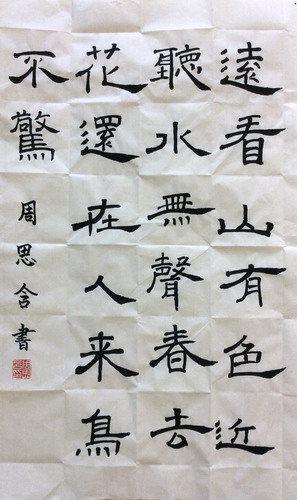 遠看山有色近
聽水無聲春去
花還在人来鳥
不驚
周思含書